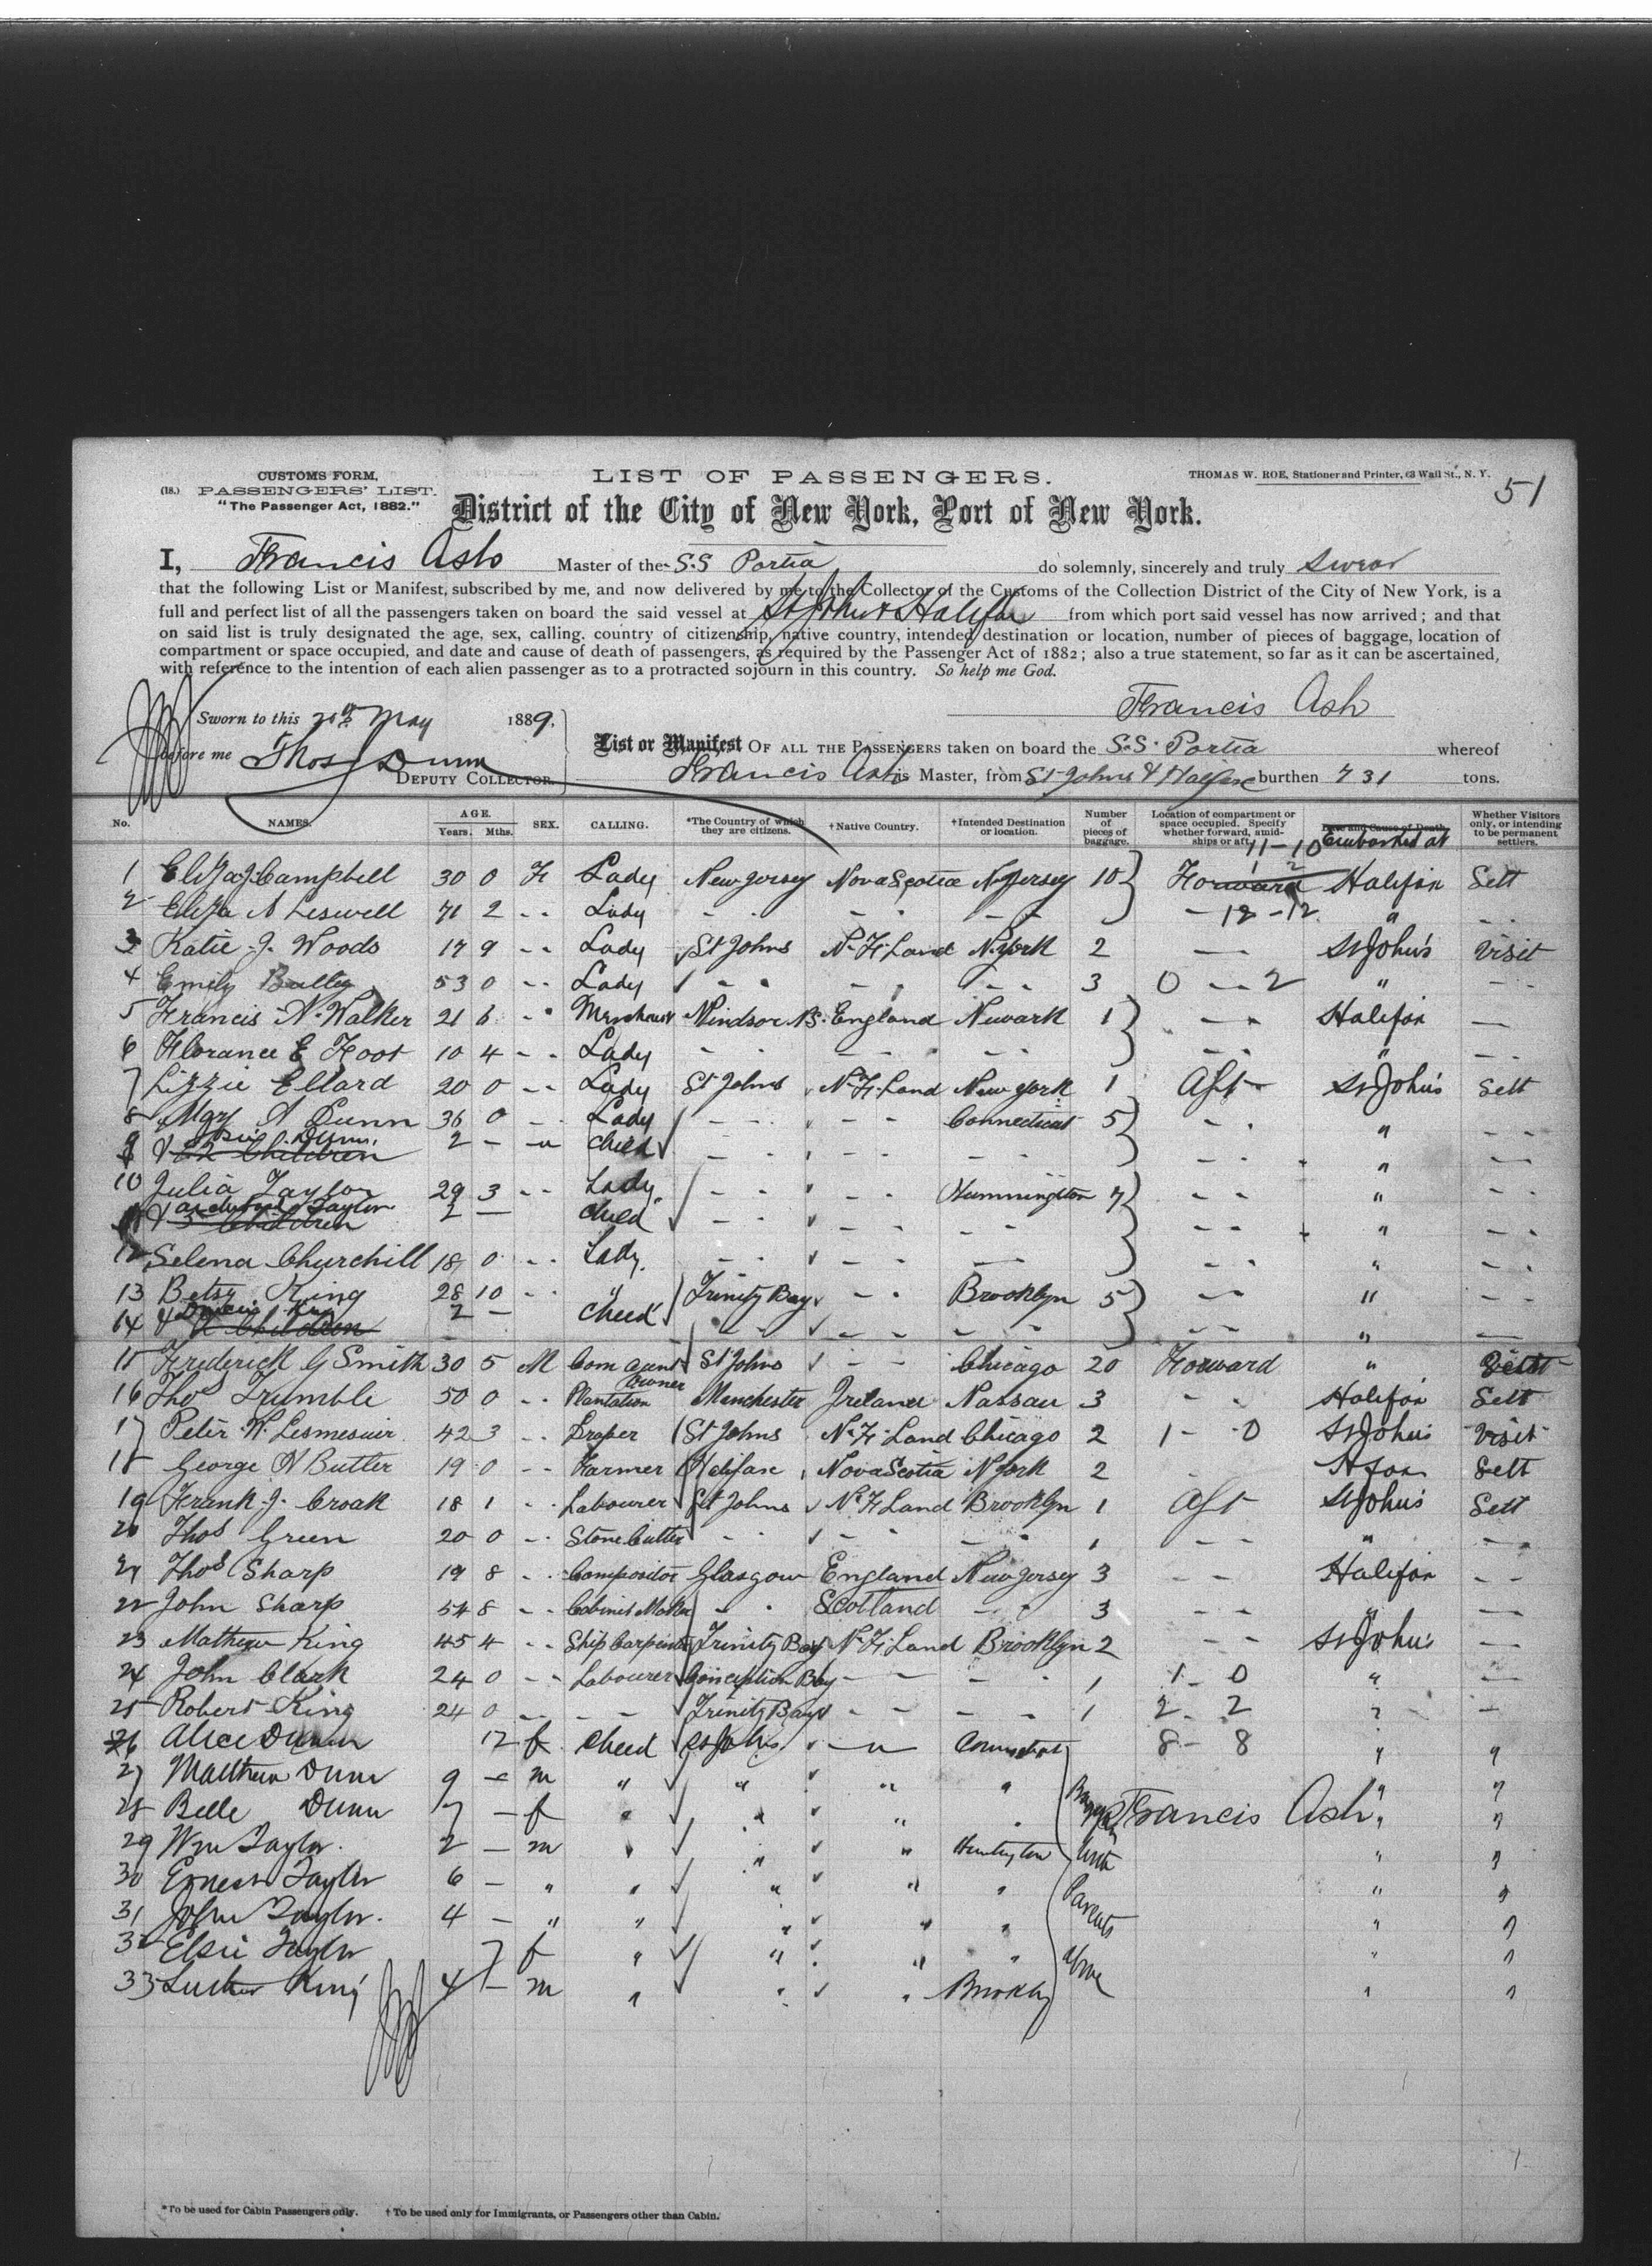 CUSTOMS FORM,
(18.) PASSENGERS' LIST.
"The Passenger Act, 1882."
LIST OF PASSENGERS.
THOMAS W. ROE, Stationer and Printer, 63 Wall St., N. Y.
51
District of the City of New York, Port of New York.
I, Francis Ash Master of the S.S Portia do solemnly, sincerely and truly swear
that the following List or Manifest, subscribed by me, and now delivered by me to the Collector of the Customs of the Collection District of the City of New York, is a
full and perfect list of all the passengers taken on board the said vessel at St Johns & Halifax from which port said vessel has now arrived; and that
on said list is truly designated the age, sex, calling, country of citizenship, native country, intended destination or location, number of pieces of baggage, location of
compartment or space occupied, and date and cause of death of passengers, as required by the Passenger Act of 1882; also a true statement, so far as it can be ascertained,
with reference to the intention of each alien passenger as to a protracted sojourn in this country. So help me God.
Francis Ash
Sworn to this May 1889,
before me Thos J Dunn
DEPUTY COLLECTOR.
List or Manifest OF ALL THE PASSENGERS taken on board the S.S. Portia whereof
Francis Ash is Master, from St Johns & Halifax burthen 731 tons.
No. NAMES. AGE. Years. Mths. SEX. CALLING. *The Country of which they are citizens. †Native Country. †Intended Destination or location. Number of pieces of baggage. Location of compartment or space occupied. Specify whether forward, amidships or aft. Date and Cause of Death. Embarked at Whether Visitors only, or intending to be permanent settlers.
11-10
1 Eliza J. Campbell 30 0 F Lady New Jersey Nova Scotia N Jersey 10 Forward Halifax Sett
2 Eliza A Leswell 71 2 -- Lady - - - - - - - 12 - 12 " - -
3 Katie J. Woods 17 9 -- Lady St Johns N.F. Land N.York 2 - St John's Visit
4 Emily 53 0 -- Lady - - - - - - 3 0 - - 2 " - -
5 Francis N. Walker 21 6 -- Merchant Windsor N.S. England Newark 1 - - Halifax -
6 Florance E Foot 10 4 -- Lady - - - - - - - - " - -
7 Lizzie Ellard 20 0 -- Lady St Johns N.F. Land New York 1 Aft St John's Sett
8 Mary A Dunn 36 0 -- Lady - - - - Connecticut 5 - - " - -
9 Dunn & 2 Children 2 - -"- Child - - - - - - - - " -
10 Julia Taylor 29 3 -- Lady - - - - Hunnington 7 - - " - -
& Taylor 3 Children 2 - Child - - - - - - - - " - -
12 Selena Churchill 18 0 -- Lady. - - - - - - - - " - -
13 Betsy King 28 10 -- " Trinity Bay - - Brooklyn 5 - - " - -
14 & King Children 2 - Child - - - - - - - - " -
15 Frederick G Smith 30 5 M Com Agent St Johns - - Chicago 20 Forward "
16 Thos Trumble 50 0 -- Plantation Owner Manchester Ireland Nassau 3 - - Halifax Sett
17 Peter W. Lesmesuir 42 3 -- Draper St Johns N.F. Land Chicago 2 1 - 0 St John's Visit
18 George N Butler 19 0 -- Farmer Halifax Nova Scotia N York 2 - Sett
19 Frank J. Croak 18 1 -- Labourer St Johns N.F. Land Brooklyn 1 Aft St John's Sett
20 Thos Green 20 0 -- Stone Cutter - - - - - - 1 - - " -
21 Thos Sharp 19 8 -- Compositor Glasgow England New Jersey 3 - - Halifax - -
22 John Sharp 54 8 -- Cabinet Maker - - Scotland - - 3 - - " -
23 Mathew King 45 4 -- Ship Carpinter Trinity Bay N.F. Land Brooklyn 2 - - St John's -
24 John Clark 24 0 -- Labourer Conception Bay - - - - 1 1 - 0 " -
25 Robert King 24 0 -- - - Trinity Bay - - - - 1 2 - 2 " -
26 Alice Dunn 12 f Child St Johns -"- Connecticut 8 - 8 " "
27 Matthew Dunn 9 - m " " " " " "
28 Belle Dunn 7 - f " " " " Francis Ash " "
29 Wm Taylor. 2 - m " " " Huntington " "
30 Ernest Taylor 6 - " " " " " " "
31 John Taylor. 4 - " " " " " " "
32 Elsie Taylor 7 f " " " " " "
33 Luther King 4 - m " " " Brooklyn " "
Baggage with Parents above
*To be used for Cabin Passengers only. † To be used only for Immigrants, or Passengers other than Cabin.